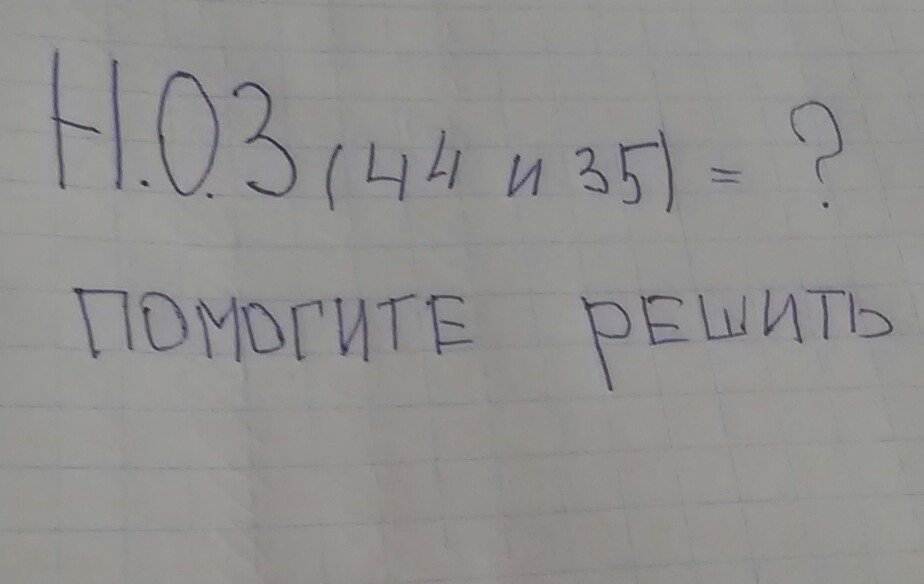 Н.О.З (44 и 35) = ?
ПОМОГИТЕ РЕШИТЬ